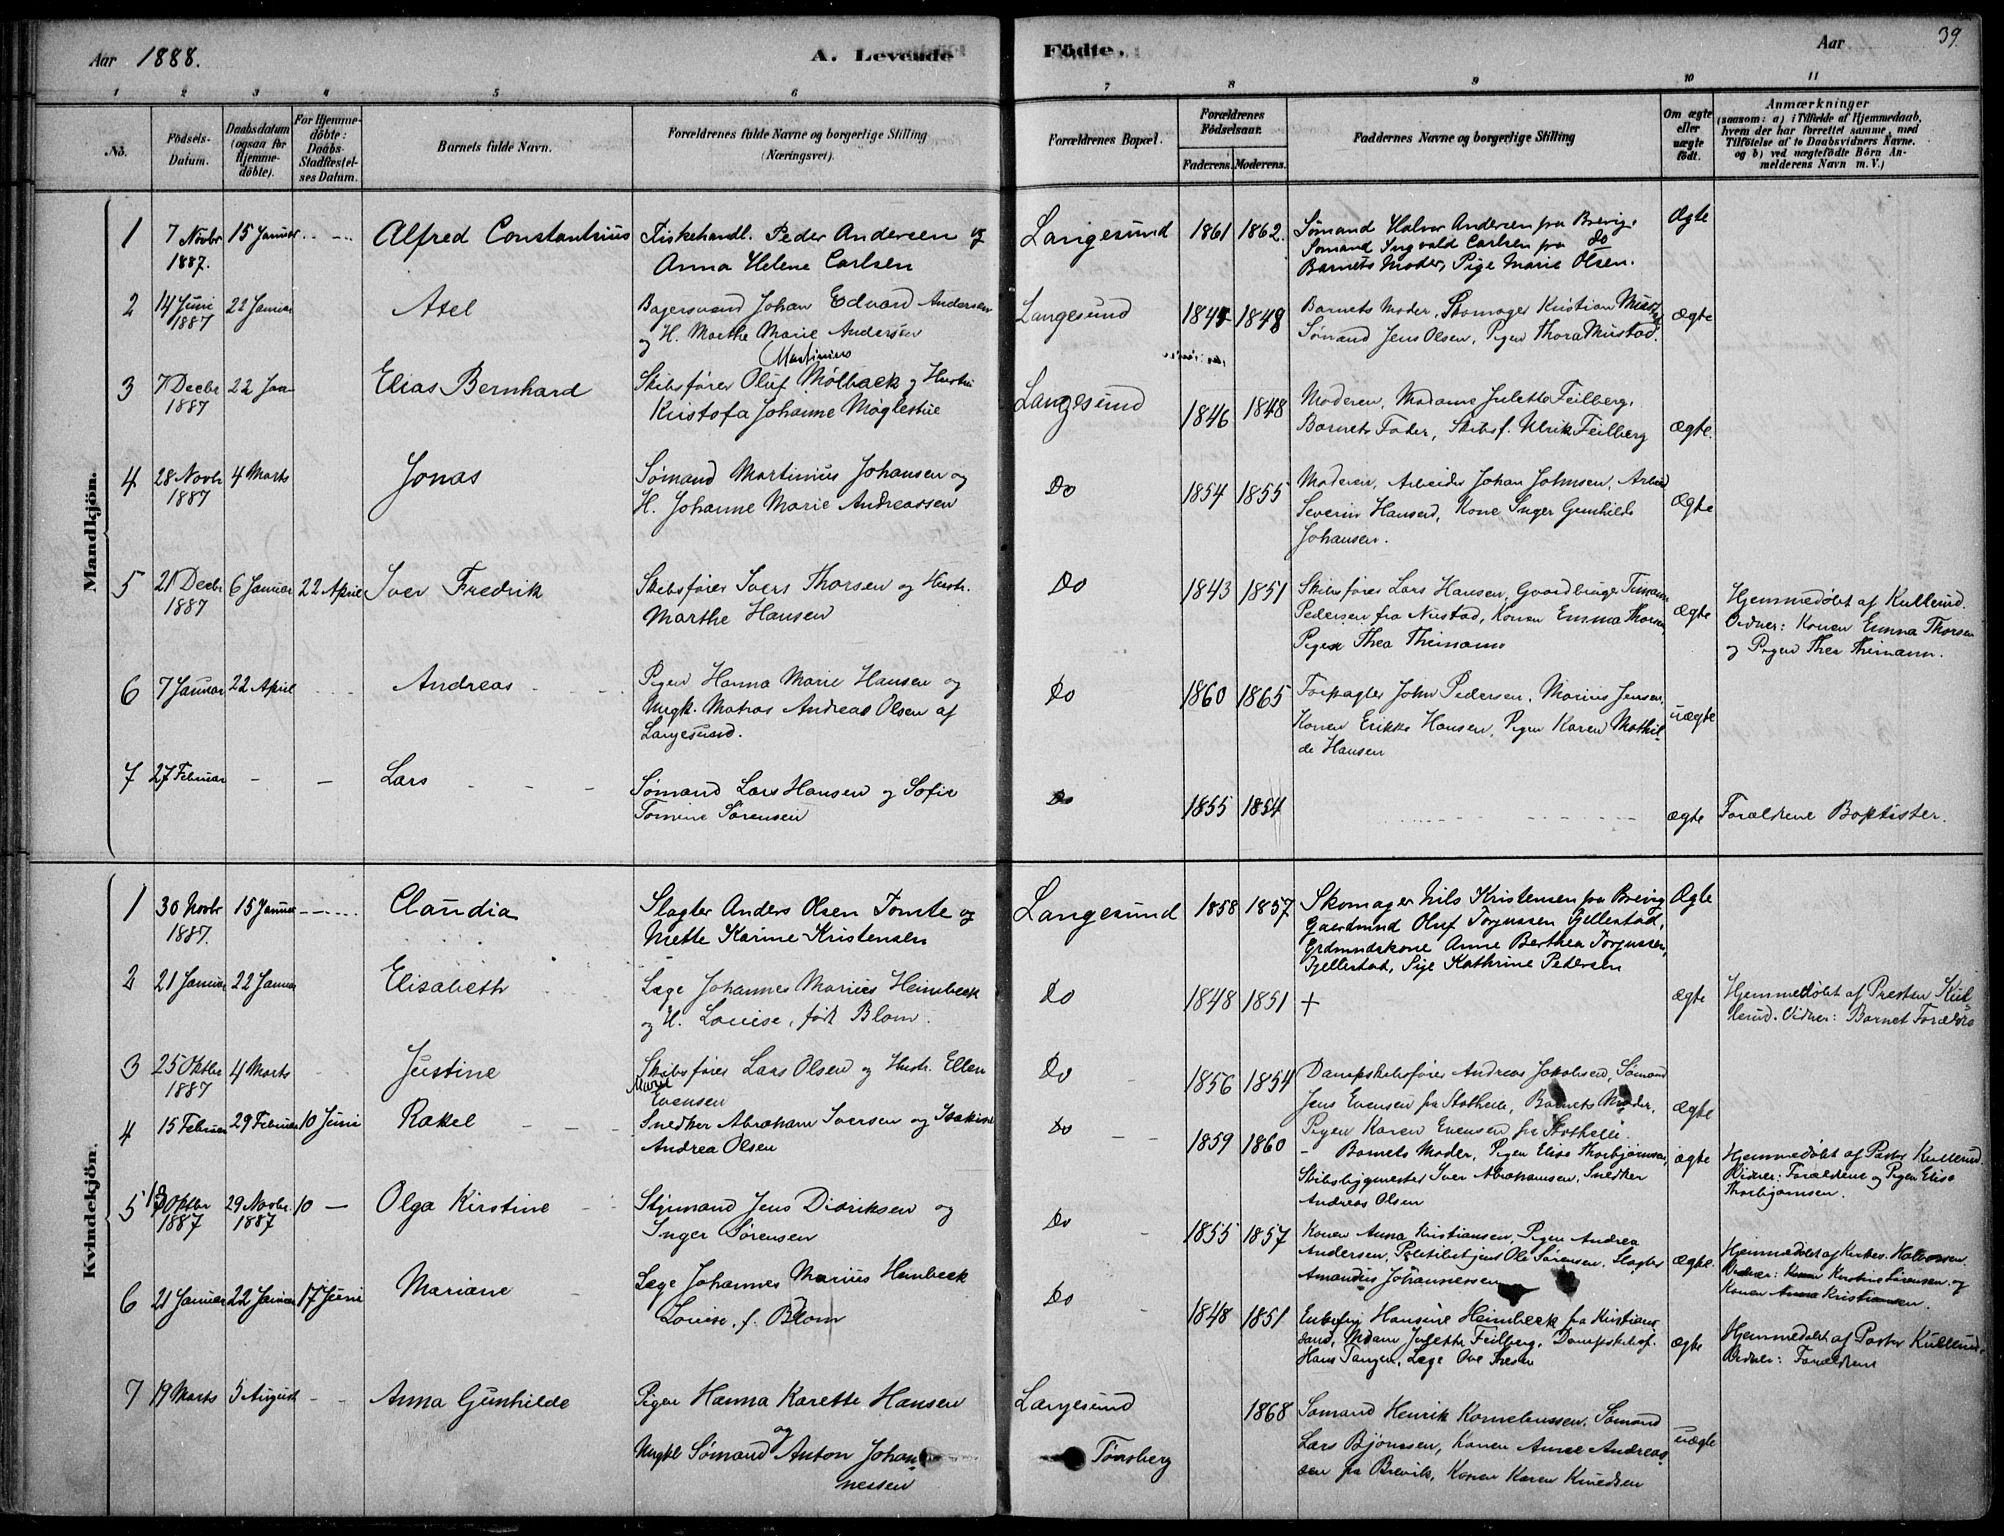 Aar 1888. A. Levende Födte. Aar 39
1 2 3 4 5 6 7 8 9 10 11
No.
Födsels-Datum.
Daabsdatum (ogsaa for Hjemme-döbte).
For Hjemme-döbte: Daabs-Stadfæstel-ses Datum.
Barnets fulde Navn.
Forældrenes fulde Navne og borgerlige Stilling (Næringsvei).
Forældrenes Bopæl.
Forældrenes Födselsaar.
Faderens. Moderens.
Faddernes Navne og borgerlige Stilling
Om ægte eller uægte födt.
Anmærkninger
(saasom: a) i Tilfælde af Hjemmedaab,
hvem der har forrettet samme, med
Tilföielse af to Daabsvidners Navne.
og b) ved uægtefödte Börn An-
melderens Navn m. V.)
Mandkjön.
1 7 Novbr 1887. 15 Januar Alfred Constantinius Fiskehandl. Peder Andersen og
Anna Helene Carlsen
Langesund 1861 1862. Sømand Halvor Andersen fra Brevig.
Sømand Ingvald Carlsen fra do
Barnets Moder, Pige Marie Olsen.
Ægte
2 14 Juni 1887 22 Januar Axel Johan Edvard Andersen
og H. Marthe Marie Andersen
Langesund 1848 Barnets Moder, Skomager Kristian
Sømand Jens Olsen, Pigen Thora Mustad.
ægte
3 7 Decbr 1887 22 Jan Elias Bernhard Martinius
Skibsfører Oluf Mølback og Hustru
Kristofa Johanne Møglestue
Langesund 1846 1848 Moderen, Madame Julette Feilberg,
Barnets Fader, Skibsf. Ulrik Feilberg
ægte.
4 28 Novbr 1887 4 Marts Jonas Sømand Martinius Johansen og
H. Johanne Marie Andreassen
Do 1854 1855 Moderen, Arbeider Johan Johnsen, Arbeid
Severin Hansen, Kone Inger Gunhilde
Johansen.
ægte
5 21 Decbr 1887 6 Januar 22 April Iver Fredrik Skibsfører Ivers Thorsen og Hustr.
Marthe Hansen
Do 1843 1851 Skibsfører Lars Hansen, Gaardbruger
Pedersen fra Nustad, Konen Emma Thorsen
Pigen Thea Theimann
ægte
Hjemmedøbt af Kullerud.
Vidner: Konen Emma Thorsen
og Pigen Thea Theimann.
6 7 Januar 22 April Andreas Pigen Hanna Marie Hansen og
Ungk. Matros Andreas Olsen af
Langesund.
Do 1860 1865 Forpagter John Pedersen, Marius Jensen,
Konen Erikke Hansen, Pigen Karen Mathil-
de Hansen
uægte
7 27 Februar Lars Sømand Lars Hansen og Sofie
Tomine Sørensen
Do 1855 1854 ægte Forældrene Baptister.
Kvindekjön.
1 30 Novbr 1887. 15 Januar Claudia Slagter Anders Olsen Tomte og
Mette Karine Kristensen
Langesund 1858 1857 Skomager Nils Kristensen fra Brevig
Gaardmand Oluf Torgussen Gjellestad,
Grdmandskone Anne Berthea Torgussen,
Gjellestad, Pige Kathrine Petersen
Ægte
2 21 Januar 22 Januar Elisabeth Læge Johannes Marius Heimbeck
og H. Louise, født Blom.
Do 1848 1851 + ægte
Hjemmedøbt af Presten Kul-
lerud. Vidner: Barnet Forældre
3 25 Oktbr 1887 4 Marts Justine Skibsfører Lars Olsen og Hustr. Ellen
Marie
Evensen
Do 1856 1854 Dampskibsfører Andreas Jakobsen, Sømand
Jens Evensen fra Stathelle, Barnets Moder,
Pigen Karen Evensen fra Stathelle.
Ægte
4 15 Februar 29 Februar 10 Juni Rakel Snedker Abraham Iversen og
Andrea Olsen
Do 1859 1860 Barnets Moder, Pigen Elise Thorbjørnsen,
Skibsbygmester Iver Abrahamsen, Snedker
Andreas Olsen
ægte
Hjemmedøbt af Pastor Kullerud.
Vidner: Forældrene og Pigen Elise
Thorbjørnsen.
5 Oktbr 1887 29 Novbr. 1887 10 — Olga Kirstine Styrmand Jens Didriksen og
Inger Sørensen
Do 1855 1857 Konen Anna Kristiansen, Pigen Andrea
Andersen, Politibetjent Ole Sørensen, Slagter
Amandus Johannessen
ægte.
Hjemmedøbt af Halvorsen.
Vidner: Kirstine Sørensen og
Konen Anna Kristiansen.
6 21 Januar 22 Januar 17 Juni Mariane Læge Johannes Marius Heimbeck
Louise, f. Blom
Do 1848 1851 Enkefru Hansine Heimbeck fra Kristian-
sand, Mdam Julette Feilberg, Dampskibsf.
Hans Tangen, Læge Ove
ægte
Hjemmedøbt af Pastor Kullerud.
Vidner: Forældrene
7 19 Marts 5 August Anna Gunhilde Pigen Hanna Karette Hansen
og
Ungkl Sømand Anton Johan-
nessen
Langesund
Tønsberg
1868 Sømand Henrik Korneliussen, Sømand
Lars Bjønssen, Konen Anne Andreas-
sen fra Brevik, Konen Karen Knudsen
uægte